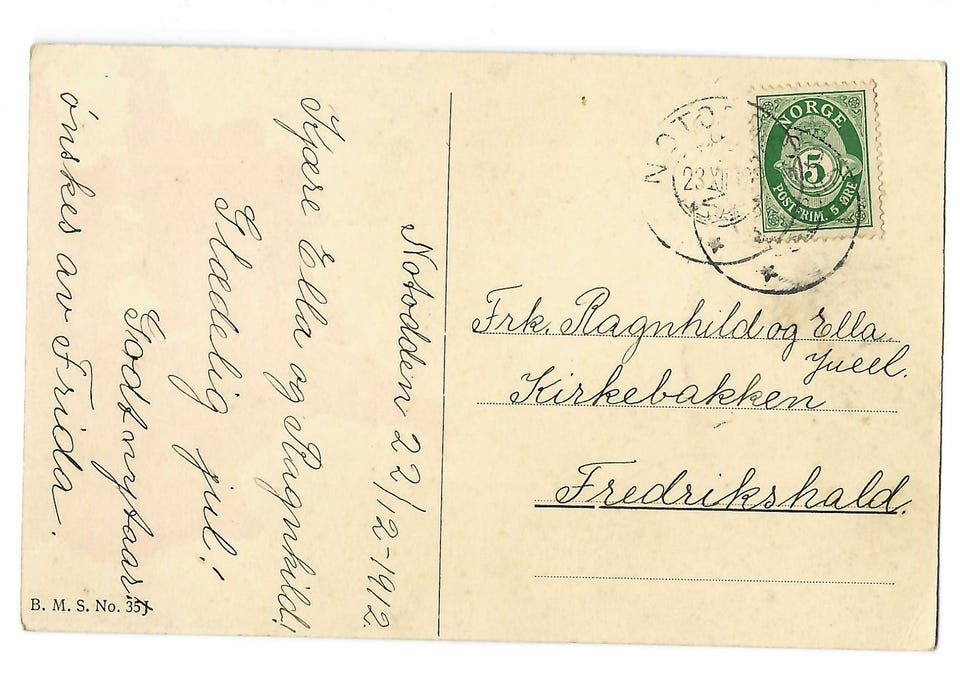 Notodden 22/12-1912.
Kjære Ella og Ragnhild!
Glædelig jul!
Godt nytaar!
ønskes av Frida.
B. M. S. No. 35
NORGE
5
POST-FRIM. 5 ØRE
NOTO
23 XII
Frk. Ragnhild og Ella
Jueel.
Kirkebakken
Fredrikshald.